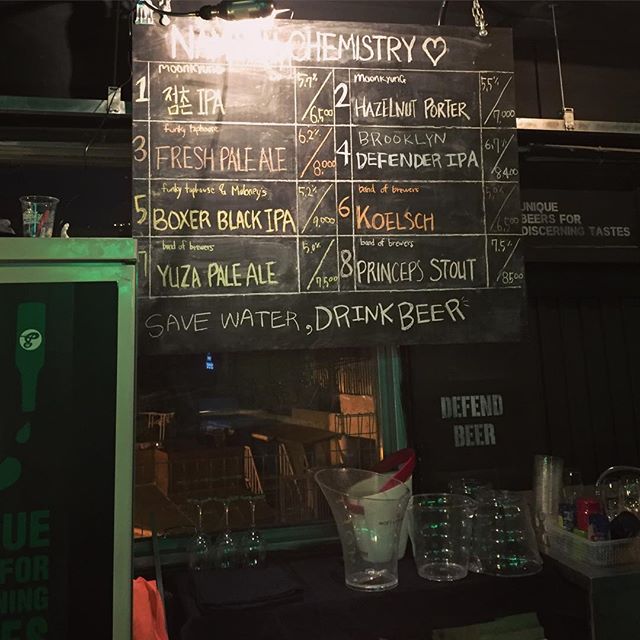 CHEMISTRY ♡
1 Moonkyung 5.7%
점촌 IPA 6,500
2 Moonkyung 5.5%
HAZELNUT PORTER 7,000
3 funky taphouse 6.2%
FRESH PALE ALE 8,000
4 BROOKLYN 6.7%
DEFENDER IPA 8400
5 funky taphouse & Maloney's 5.2%
BOXER BLACK IPA 9,000
6 band of brewers
KOELSCH
7 band of brewers 5.0%
YUZA PALE ALE 7,500
8 band of brewers 7.5%
PRINCEPS STOUT 8500
SAVE WATER, DRINK BEER
UNIQUE
BEERS FOR
DISCERNING TASTES
DEFEND
BEER
FOR